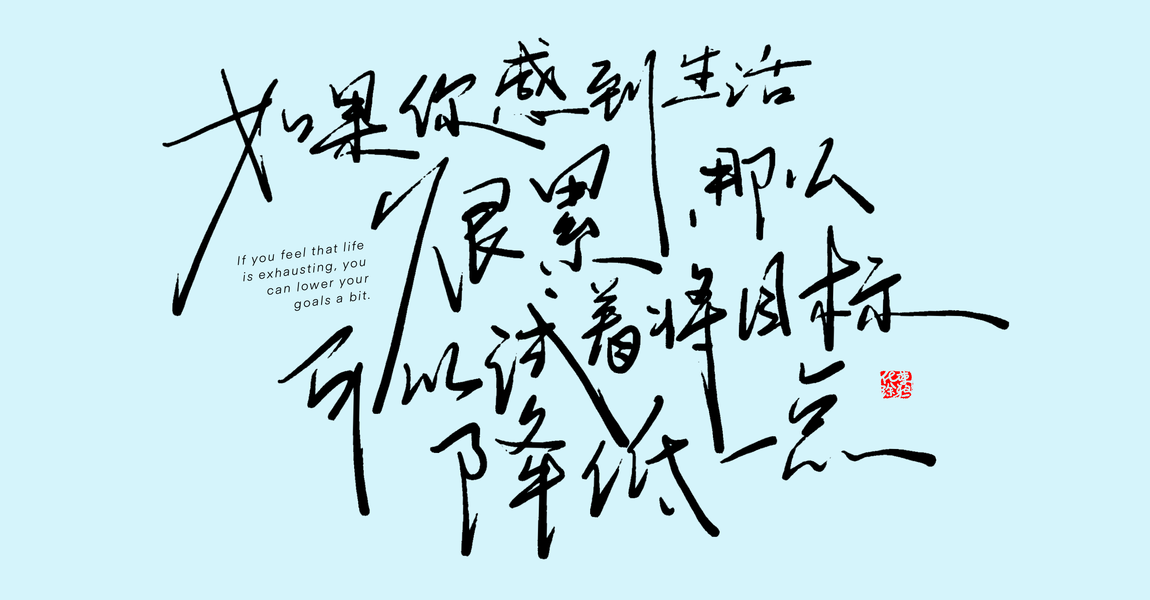 如果你感到生活
很累,那么
If you feel that life
is exhausting, you
can lower your
goals a bit.
可以试着将目标
降低一点